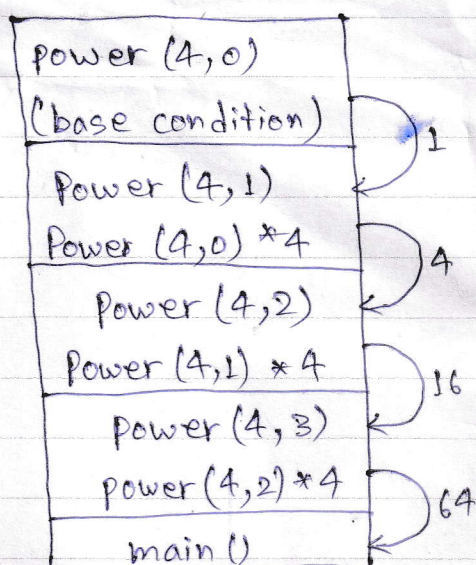 power (4,0)
(base condition)
1
Power (4,1)
Power (4,0) *4
4
Power (4,2)
Power (4,1) * 4
16
power (4,3)
power (4,2) * 4
64
main ()